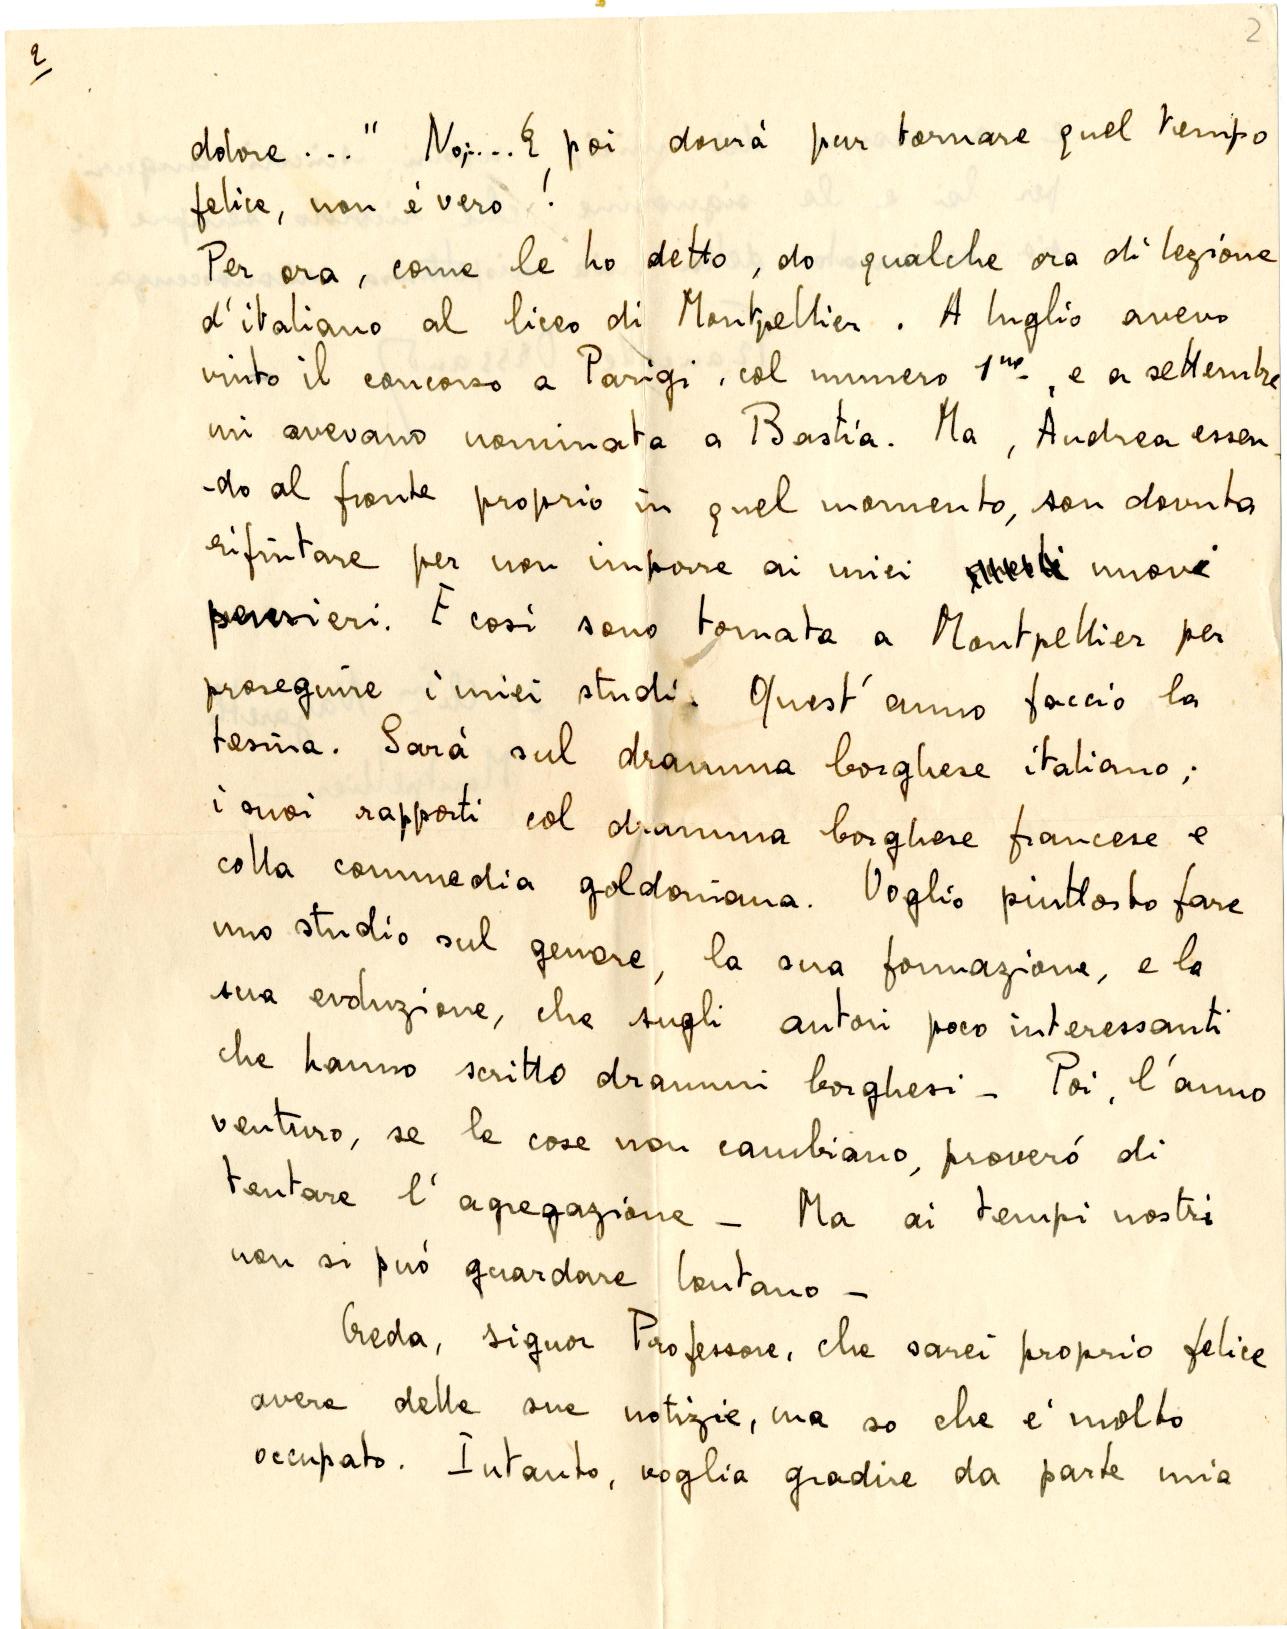 2
2
dolore..." No;... E poi dovrá pur tornare quel tempo
felice, non é vero!
Per ora, come le ho detto, do qualche ora di lezione
d'italiano al liceo di Montpellier. A luglio avevo
vinto il concorso a Parigi, col numero 1no, e a settembre
mi avevano nominata a Bastia. Ma, Andrea essen
-do al fronte proprio in quel momento, son dovuta
rifiutare per non imporre ai miei nuovi
pensieri. E cosí sono tornata a Montpellier per
proseguire i miei studi. Quest'anno faccio la
tesina. Sará sul dramma borghese italiano;
i suoi rapporti col dramma borghese francese e
colla commedia goldoniana. Voglio piuttosto fare
uno studio sul genere, la sua formazione, e la
sua evoluzione, che sugli autori poco interessanti
che hanno scritto drammi borghesi - Poi, l'anno
venturo, se le cose non cambiano, proveró di
tentare l'agregazione - Ma ai tempi nostri
non si puó guardare lontano -
Creda, signor Professore, che sarei proprio felice
avere delle sue notizie, ma so che e' molto
occupato. Intanto, voglia gradire da parte mia